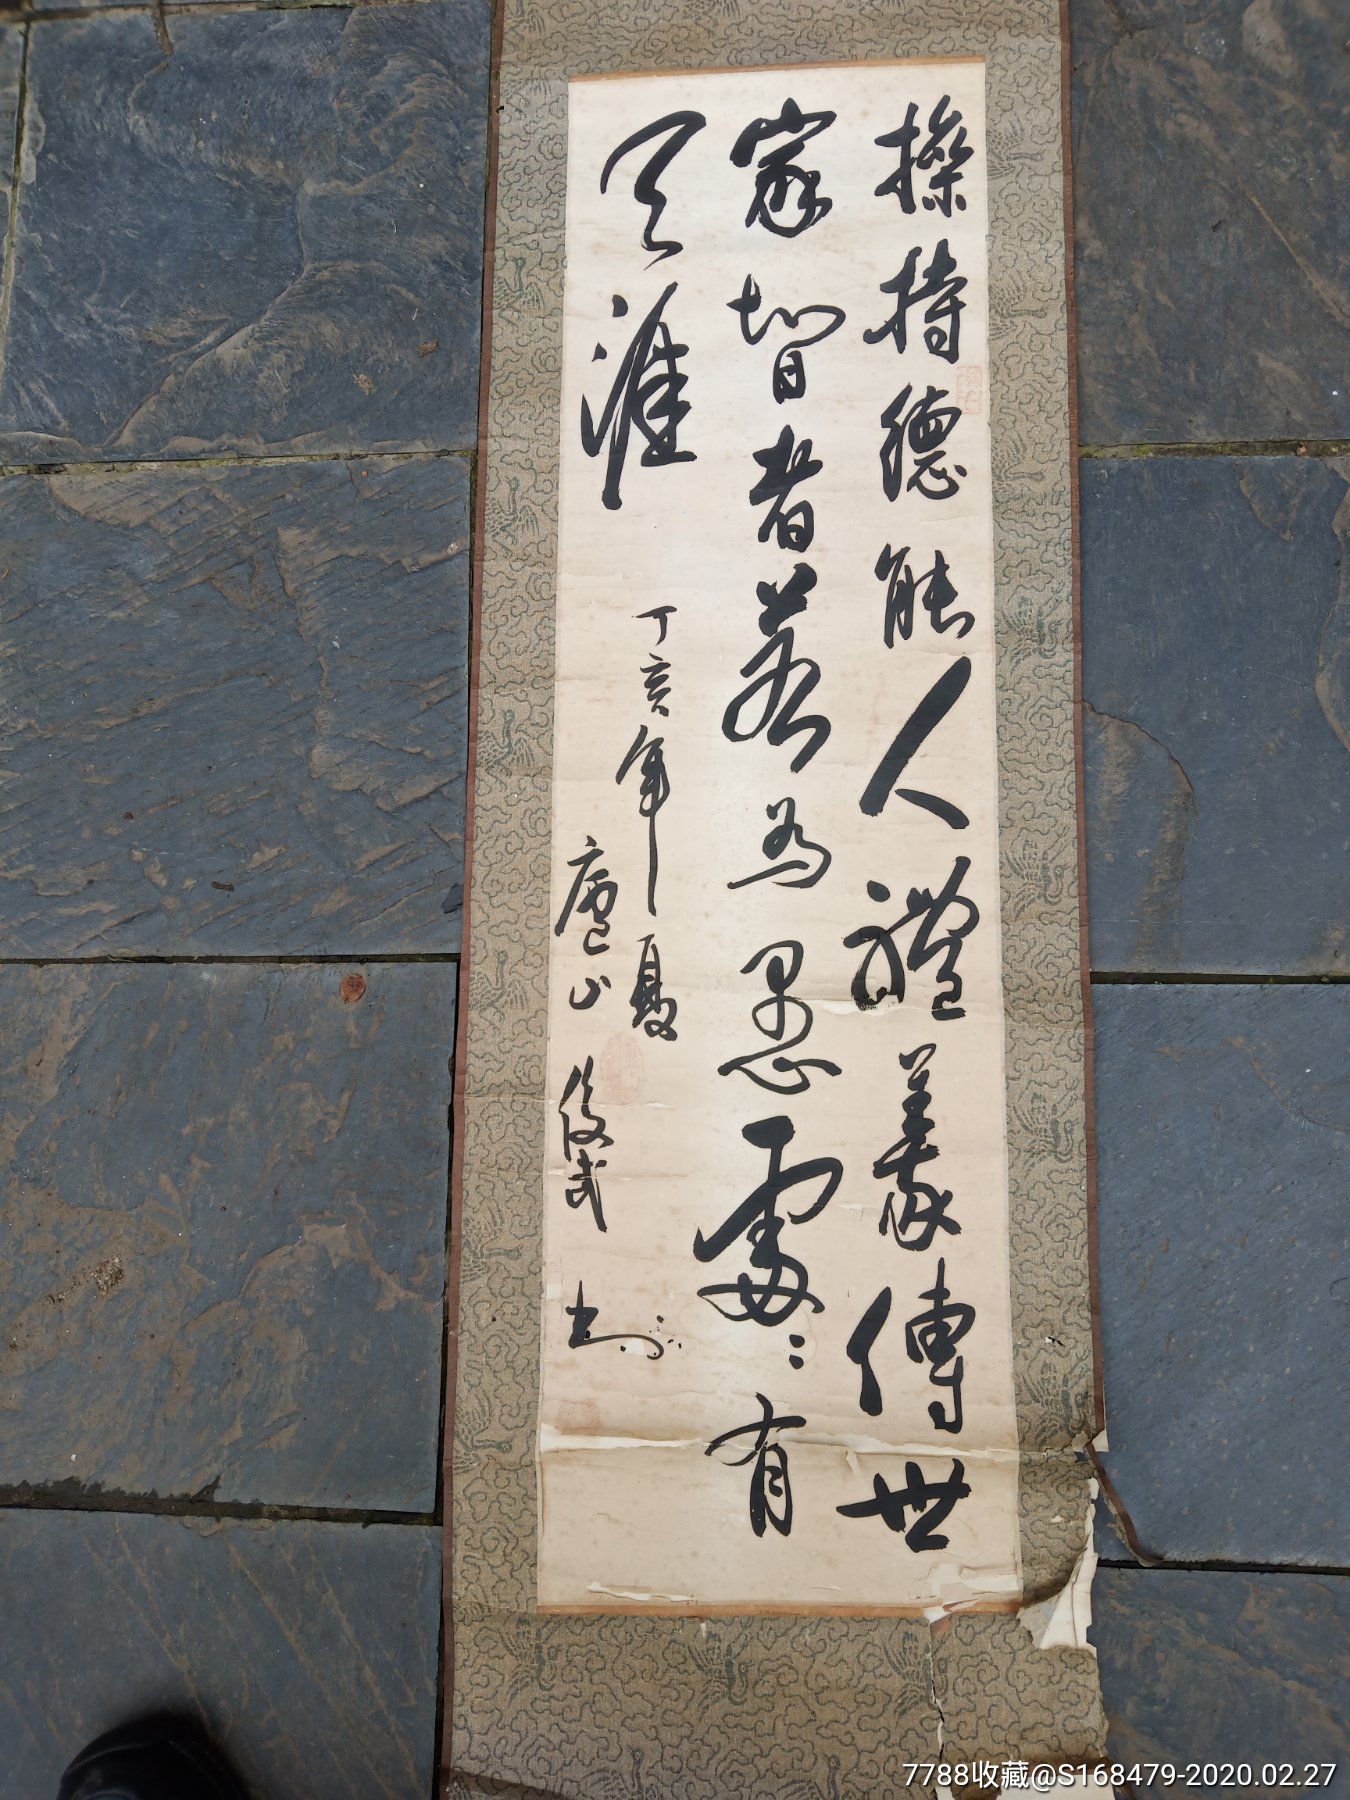 操持德能人禮義傳世
家智者若為愚處〻有
天涯
丁亥年夏
廬山 俊武 书
7788收藏@S168479-2020.02.27